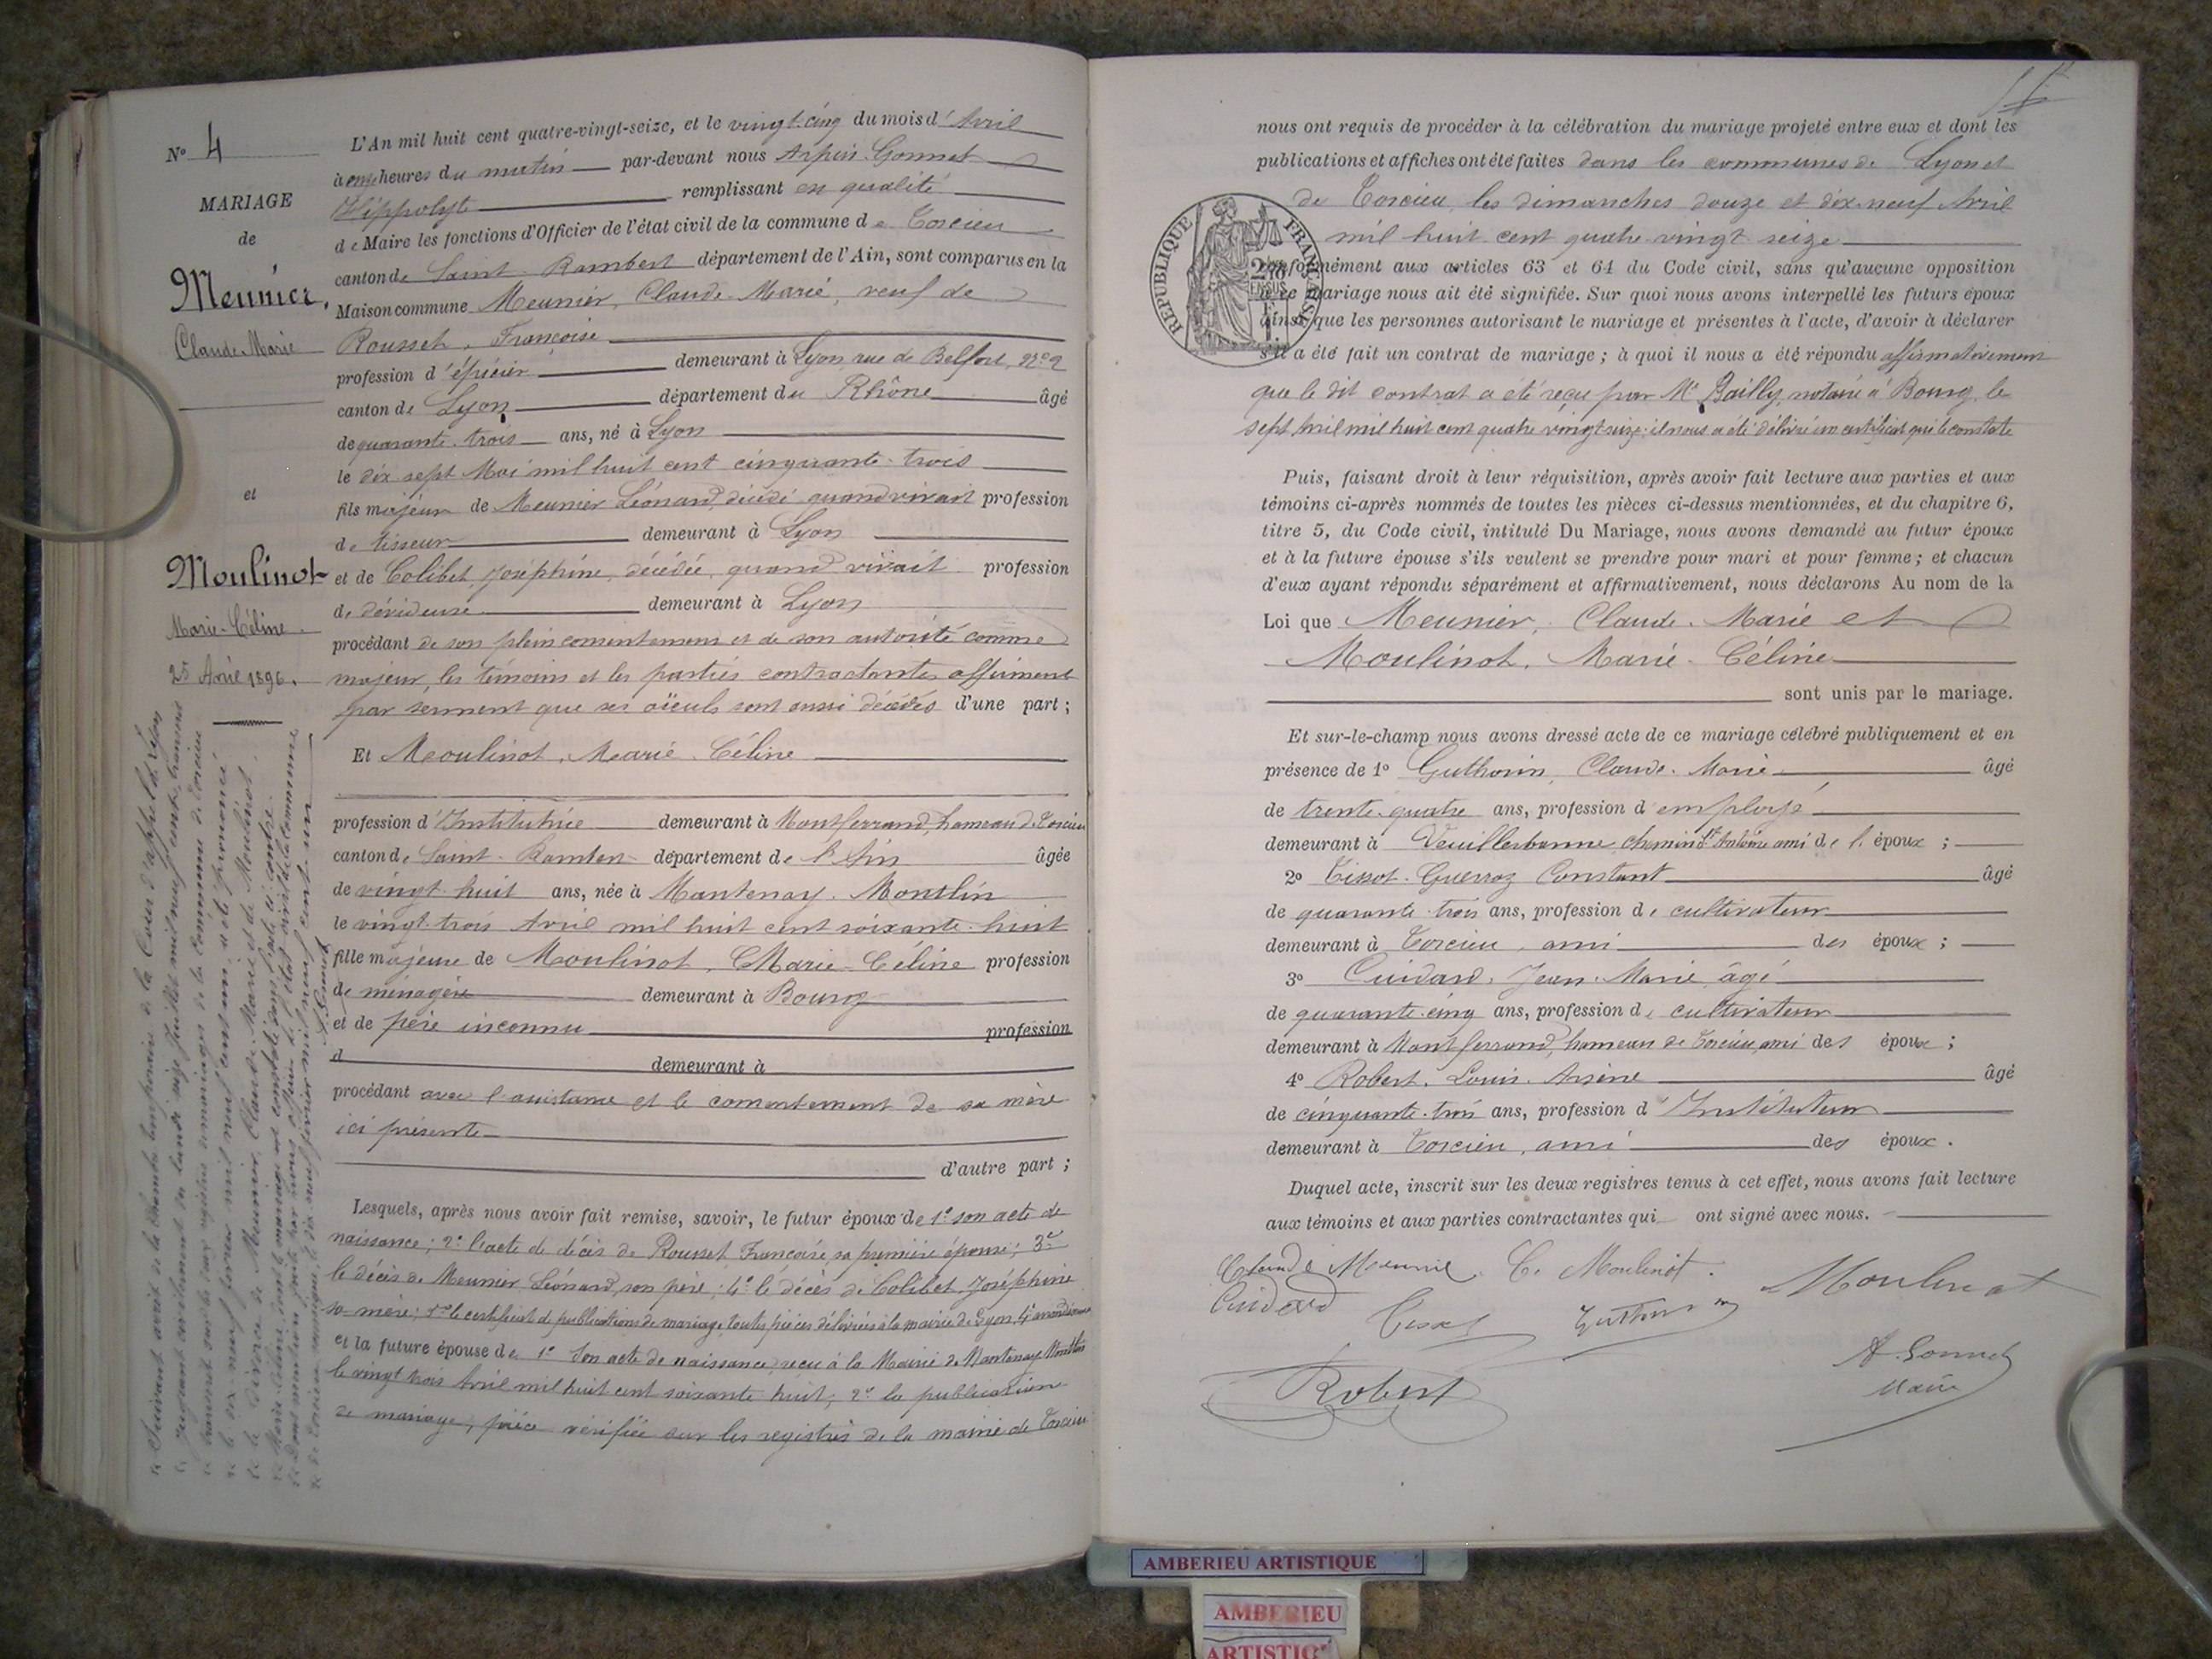 N° 4
MARIAGE
de
Meunier,
Claude Marie
et
Moulinot
Marie-Céline
25 Avril 1896.
L'An mil huit cent quatre-vingt-seize, et le vingt-cinq du mois d'Avril
à onze heures du matin par-devant nous Arpin-Gonnet
Hippolyte remplissant en qualité
de Maire les fonctions d'Officier de l'état civil de la commune de Torcieu
canton de Saint-Rambert département de l'Ain, sont comparus en la
Maison commune Meunier, Claude-Marie, veuf de
Rousset, Françoise
profession d'épicier demeurant à Lyon, rue de Belfort, N° 2
canton de Lyon département du Rhône âgé
de quarante-trois ans, né à Lyon
le dix sept Mai mil huit cent cinquante-trois
fils majeur de Meunier Léonard, décédé quand vivait profession
de tisseur demeurant à Lyon
et de Colibet, Joséphine, décédée, quand vivait profession
de dévideuse demeurant à Lyon
procédant de son plein consentement et de son autorité comme
majeur, les témoins et les parties contractantes affirment
par serment que ses aïeuls sont aussi décédés d'une part ;
Et Moulinot, Marie-Céline
profession d'Institutrice demeurant à Montferrand, hameau de Torcieu
canton de Saint-Rambert département de l'Ain âgée
de vingt-huit ans, née à Mantenay-Montlin
le vingt-trois Avril mil huit cent soixante-huit
fille majeure de Moulinot, Marie-Céline profession
de ménagère demeurant à Bourg
et de père inconnu profession
d demeurant à
procédant avec l'assistance et le consentement de sa mère
ici présente
d'autre part ;
Lesquels, après nous avoir fait remise, savoir, le futur époux de 1° son acte de
naissance ; 2° l'acte de décès de Rousset Françoise, sa première épouse ; 3°
le décès de Meunier Léonard, son père ; 4° le décès de Colibet, Joséphine
sa mère ; 5° le certificat de publications de mariage, toutes pièces délivrées à la mairie de Lyon, 4e arrondissement
et la future épouse de 1° Son acte de naissance, reçu à la Mairie de Mantenay-Montlin
le vingt trois Avril mil huit cent soixante huit ; 2° la publication
de mariage, pièce vérifiée sur les registres de la mairie de Torcieu
Suivant arrêt de la Cour d'appel de Lyon
le divorce de Meunier, Claude-Marie et de Moulinot
nous ont requis de procéder à la célébration du mariage projeté entre eux et dont les
publications et affiches ont été faites dans les communes de Lyon et
de Torcieu, les dimanches douze et dix-neuf Avril
mil huit cent quatre-vingt seize
conformément aux articles 63 et 64 du Code civil, sans qu'aucune opposition
à ce mariage nous ait été signifiée. Sur quoi nous avons interpellé les futurs époux
ainsi que les personnes autorisant le mariage et présentes à l'acte, d'avoir à déclarer
s'il a été fait un contrat de mariage ; à quoi il nous a été répondu affirmativement
que le dit contrat a été reçu par Me Bailly, notaire à Bourg, le
sept Avril mil huit cent quatre vingt seize ; il nous a été délivré un certificat qui le constate
RÉPUBLIQUE FRANÇAISE
Puis, faisant droit à leur réquisition, après avoir fait lecture aux parties et aux
témoins ci-après nommés de toutes les pièces ci-dessus mentionnées, et du chapitre 6,
titre 5, du Code civil, intitulé Du Mariage, nous avons demandé au futur époux
et à la future épouse s'ils veulent se prendre pour mari et pour femme ; et chacun
d'eux ayant répondu séparément et affirmativement, nous déclarons Au nom de la
Loi que Meunier, Claude-Marie et
Moulinot, Marie-Céline
sont unis par le mariage.
Et sur-le-champ nous avons dressé acte de ce mariage célébré publiquement et en
présence de 1° Guthorin, Claude-Marie âgé
de trente-quatre ans, profession d'employé
demeurant à Veuillerbanne chemin St Antoine ami de l'époux ;
2° Tissot-Guerraz Constant âgé
de quarante-trois ans, profession de cultivateur
demeurant à Torcieu, ami des époux ;
3° Cuidard, Jean-Marie, âgé
de quarante-cinq ans, profession de cultivateur
demeurant à Montferrand, hameau de Torcieu, ami des époux ;
4° Robert, Louis-Arsène âgé
de cinquante-trois ans, profession d'Instituteur
demeurant à Torcieu, ami des époux.
Duquel acte, inscrit sur les deux registres tenus à cet effet, nous avons fait lecture
aux témoins et aux parties contractantes qui ont signé avec nous.
Claude Meunier C. Moulinot. Moulinot
Cuidard
Robert
A. Gonnet
Maire
AMBERIEU ARTISTIQUE
AMBERIEU
ARTISTIQ